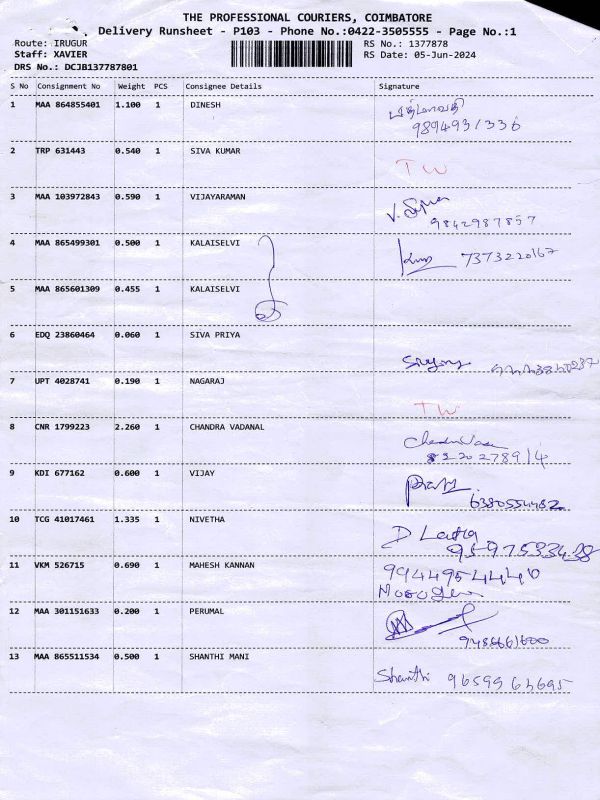 THE PROFESSIONAL COURIERS, COIMBATORE
Delivery Runsheet - P103 - Phone No.:0422-3505555 - Page No.:1
Route: IRUGUR RS No.: 1377878
Staff: XAVIER RS Date: 05-Jun-2024
DRS No.: DCJB137787801
S No Consignment No Weight PCS Consignee Details Signature
1 MAA 864855401 1.100 1 DINESH பத்மாவதி
9894931336
2 TRP 631443 0.540 1 SIVA KUMAR TW
3 MAA 103972843 0.590 1 VIJAYARAMAN
9842987857
4 MAA 865499301 0.500 1 KALAISELVI 7373220167
5 MAA 865601309 0.455 1 KALAISELVI
6 EDQ 23860464 0.060 1 SIVA PRIYA
7 UPT 4028741 0.190 1 NAGARAJ TW
8 CNR 1799223 2.260 1 CHANDRA VADANAL
9 KDI 677162 0.600 1 VIJAY
6380554482
10 TCG 41017461 1.335 1 NIVETHA D Latha
11 VKM 526715 0.690 1 MAHESH KANNAN 9944954440
12 MAA 301151633 0.200 1 PERUMAL
13 MAA 865511534 0.500 1 SHANTHI MANI Shanthi